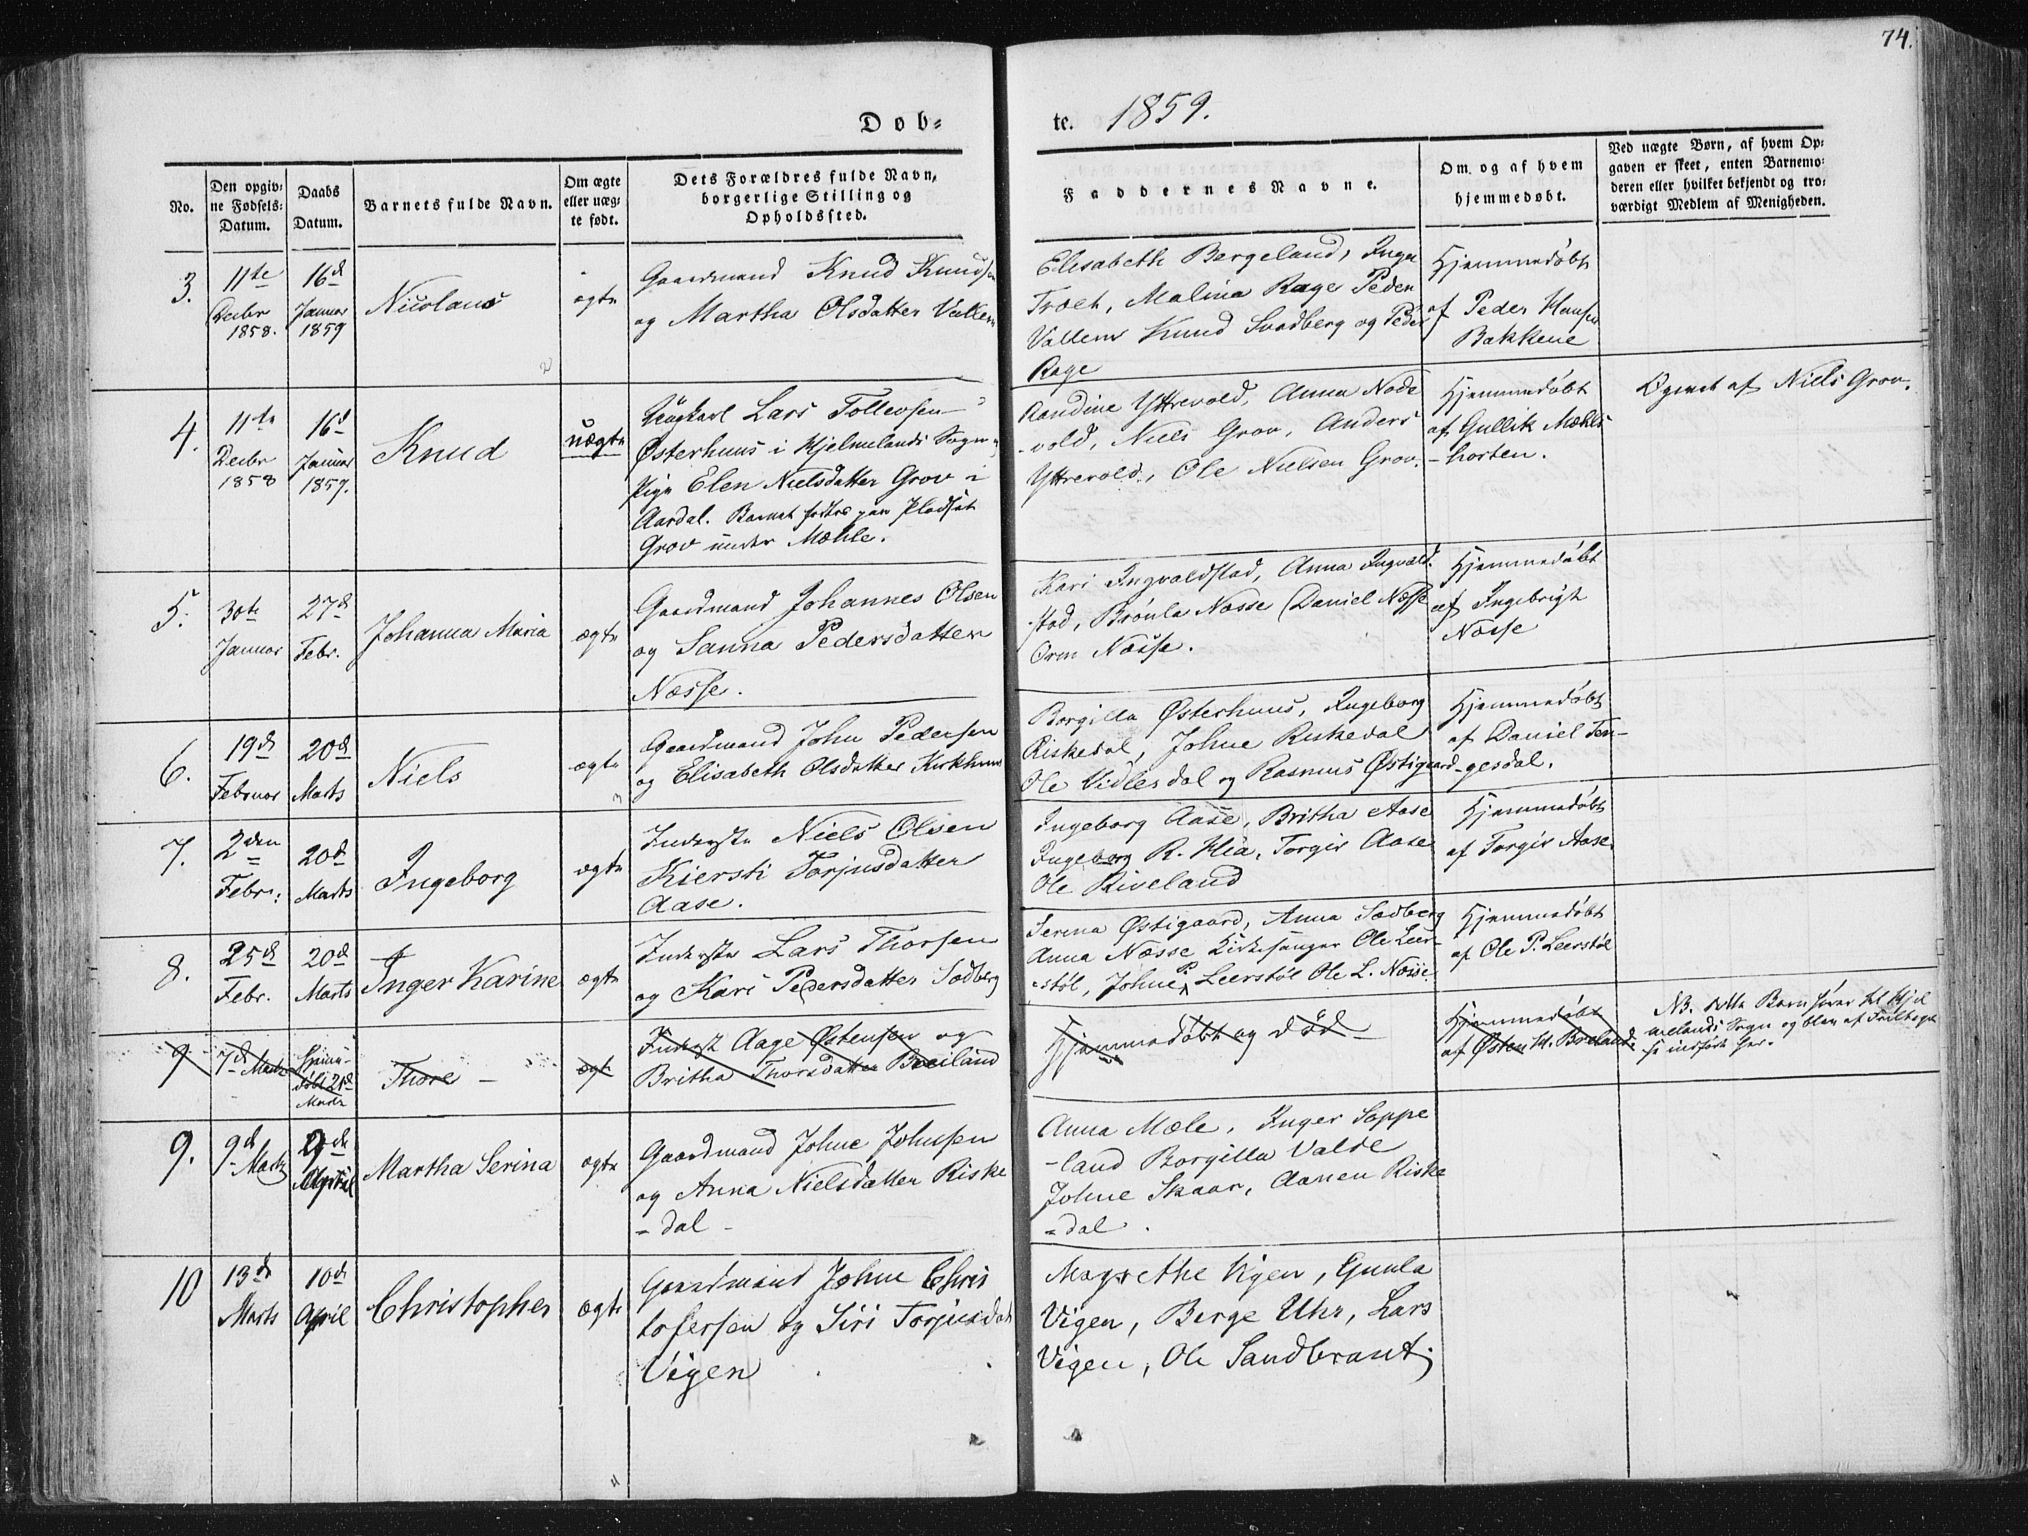 74.
Døb-
te. 1859.
No.
Den opgiv-
ne Fødsels-
Datum.
Daabs
Datum.
Barnets fulde Navn.
Om ægte
eller uæg-
te født.
Dets Forældres fulde Navn,
borgerlige Stilling og
Opholdssted.
Faddernes Navne.
Om og af hvem
hjemmedøbt.
Ved uægte Børn, af hvem Op-
gaven er skeet, enten Barnemo-
deren eller hvilket bekjendt og tro-
værdigt Medlem af Menigheden.
3.
11te
Decbr
1858.
16d
Januar
1859
Nicolaus
ægte
Gaardmand Knud Knudsen
og Martha Olsdatter
Elisabeth Bergeland, Inga
Troet, Malina Rage Peder
Vallem Knud Svadberg og Peder
Rage
Hjemmedøbt
af Peder Hansen
Bakkene
4.
11te
Decbr
1858
16d
Januar
1859.
Knud
uægte
Ungkarl Lars Tollevsen
Østerhuus i Hjelmelands Sogn og
Pige Elen Nielsdatter Grov i
Aardal. Barnet født paa Pladset
Grov under Mæhle.
Aandine Yttrevold, Anna Node
vold, Niels Grov, Anders
Yttrevold, Ole Nielsen Grov.
Hjemmedøbt
af Gullik Mæhls
-horten.
Opgivet af Niels Grov.
5.
30te
Januar
27d
Febr.
Johanna Maria
ægte
Gaardmand Johannes Olsen
og Sanna Pedersdatter
Næsse.
Kari Ingvaldstad, Anna Ingvald-
stad, Brønla Næsse Daniel Næsse
Orm Næsse.
Hjemmedøbt
af Ingebrigt
Næsse
6.
19d
Februar
20d
Marts
Niels
ægte
Gaardmand John Pedersen
og Elisabeth Olsdatter Kirkhuus
Borgilla Østerhuus, Ingeborg
Riskedal, Johne Riskedal
Ole Vidlesdal og Rasmus Østigaard
Hjemmedøbt
af Daniel Ten-
gesdal.
7.
2den
Febr.:
20d
Marts
Ingeborg
ægte
Inderste Niels Olsen
Kiersti Torjusdatter
Aase.
Ingeborg Aase, Britha Aase
Ingeborg R. Hia, Torgir Aase
Ole Riveland
Hjemmedøbt
af Torgir Aase
8.
25d
Febr.
20d
Marts
Inger Karine
ægte
Inderste Lars Thorsen
og Kari Pedersdatter Sodberg
Serina Østigaard, Anna Sodberg
Anna Næsse Kirkesanger Ole Leer-
støl, Johne P. Leerstøl Ole L. Næsse
Hjemmedøbt
af Ole P. Leerstøl
9
7d Marts
21d
Marts
Thore –
ægt
Inderst Aage Østensen og
Britha Thorsdatter Breiland
Hjemmedøbt og død
Hjemmedøbt
af Østen H. Breland.
NB. dette Barn hører til Hjel
melands Sogn og blev af
se indført her.
9.
9d
Marts
9de
April
Martha Serina
ægte
Gaardmand Johne Johnsen
og Anna Nielsdatter Riske
-dal –
Anna Mæle, Inger Soppe
-land Borgilla Valde
Johne Skaar, Aanen Riske
-dal.
10
13d
Marts
10de
April
Christopher
ægte
Gaardmand Johne Chris
tofersen og Siri Torjusdat
Vigen
Magrethe Vigen, Gunla
Vigen, Berge Uhr, Lars
Vigen, Ole Sandbraut.